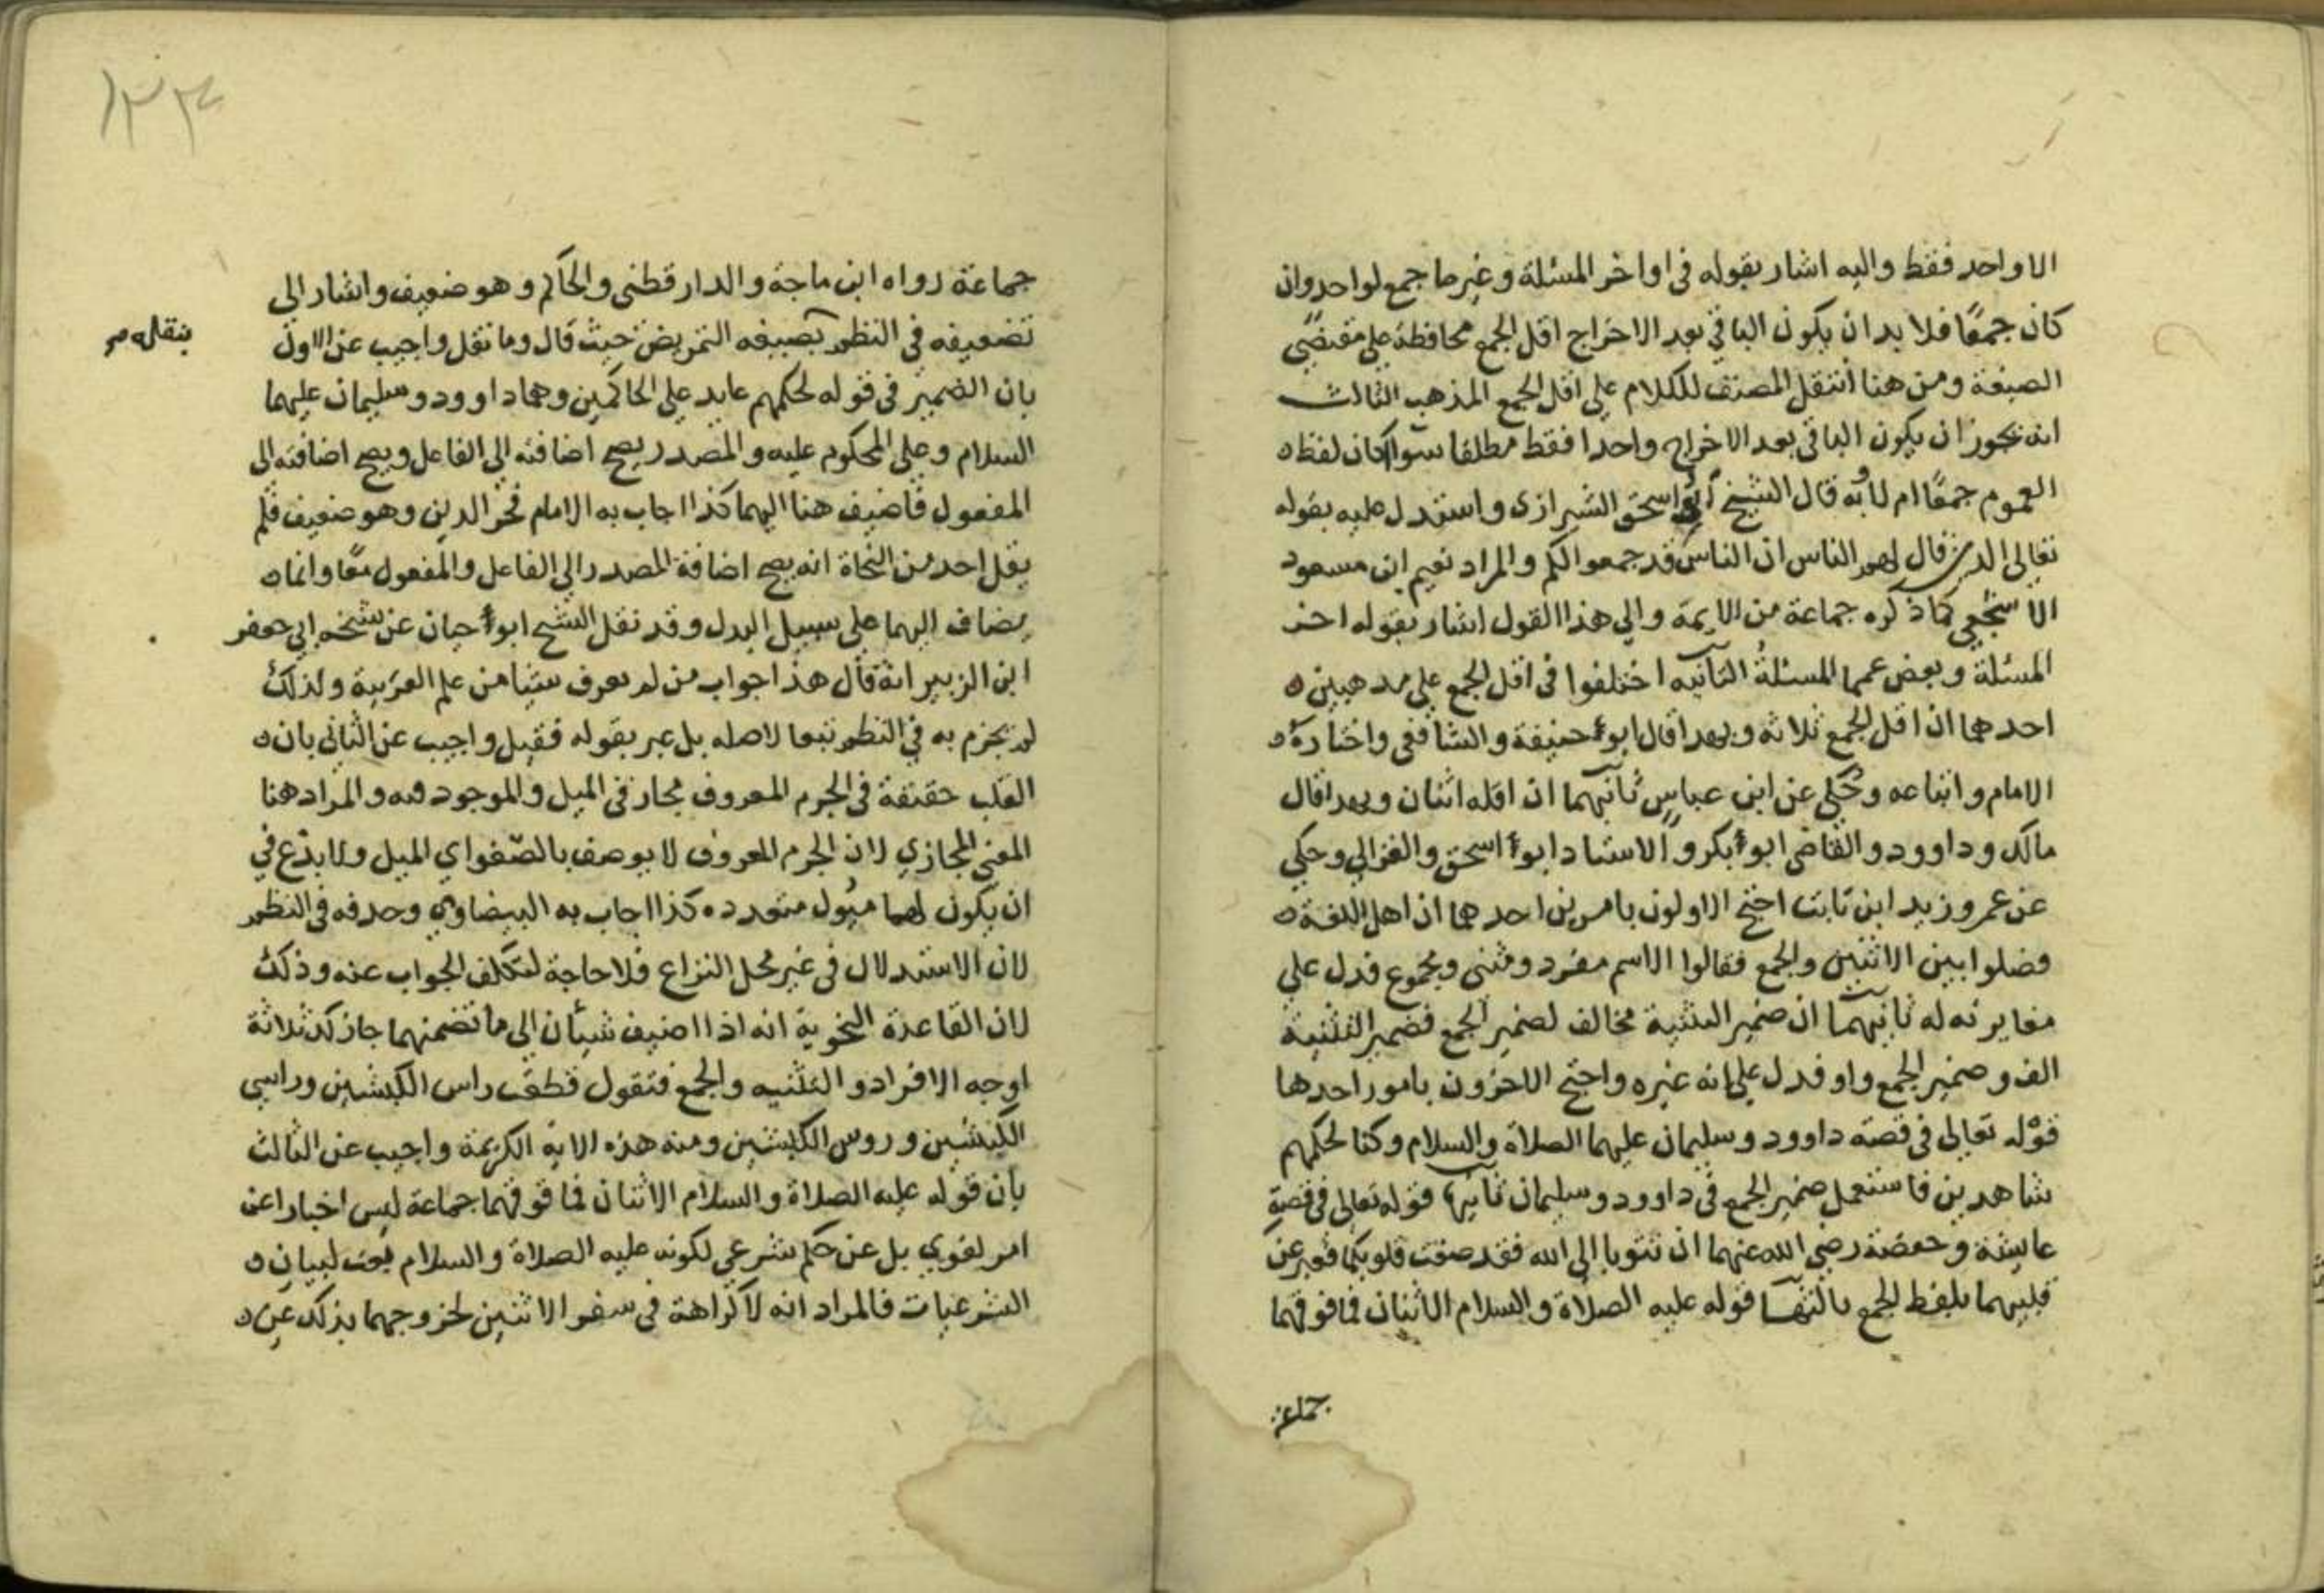 الا واحد فقط واليه اشار بقوله في اواخر المسئلة وغير ما جمع لواحد وان
كان جمعًا فلا بد ان يكون الباقي بعد الاخراج اقل الجمع محافظة علي مقتضي
الصيغة ومن هنا انتقل المصنف للكلام علي اقل الجمع المذهب الثالث
انه يجوز ان يكون الباقي بعد الاخراج واحدا فقط مطلقا سوا كان لفظ
العموم جمعًا ام لا به قال الشيخ ابو اسحق الشيرازي واستدل عليه بقوله
تعالي الذين قال لهم الناس ان الناس قد جمعوا لكم والمراد نعيم ابن مسعود
الاشجعي كما ذكره جماعة من الايمة والي هذا القول اشار بقوله اخر
المسئلة وبعض عمما المسئلة الثانيه اختلفوا في اقل الجمع علي مذهبين
احدهما ان اقل الجمع ثلاثة وبهذا قال ابو حنيفة والشافعي واختاره
الامام واتباعه وحكي عن ابن عباس ثانيهما ان اقله اثنان وبهذا قال
مالك وداوود والقاضي ابو بكر والاستاد ابو اسحق والغزالي وحكي
عن عمر وزيد ابن ثابت احتج الاولون بامرين احدهما ان اهل اللغة
فصلوا بين الاثنين والجمع فقالوا الاسم مفرد ومثني ومجموع فدل علي
مغايرته له ثانيهما ان ضمير التثنية مخالف لضمير الجمع فضمير التثنية
الف وضمير الجمع واو فدل علي انه غيره واحتج الاخرون بامور احدها
قوله تعالي في قصة داوود وسليمان عليهما الصلاة والسلام وكنا لحكمهم
شاهدين فاستعمل ضمير الجمع في داوود وسليمان ثانيها قوله تعالي في قصة
عايشة وحفصة رضي الله عنهما ان تتوبا الي الله فقد صغت قلوبكما فعبر عن
قلبيهما بلفظ الجمع ثالثها قوله عليه الصلاة والسلام الاثنان فما فوقهما
جماعة
١٣٤
جماعة رواه ابن ماجة والدارقطني والحاكم وهو ضعيف واشار الي
تضعيفه في النظم بصيغه التمريض حيث قال وما نقل واجيب عن الاول
ينقل
بان الضمير في قوله لحكمهم عايد علي الحاكمين وهما داوود وسليمان عليهما
السلام وعلي المحكوم عليه والمصدر يصح اضافته الي الفاعل ويصح اضافته الي
المفعول فاضيف هنا اليهما كذا اجاب به الامام فخر الدين وهو ضعيف فلم
يقل احد من النحاة انه يصح اضافة المصدر الي الفاعل والمفعول معًا وانما
يضاف اليهما علي سبيل البدل وقد نقل الشيخ ابو حيان عن شيخه ابي جعفر
ابن الزبير انه قال هذا جواب من لم يعرف شيئا من علم العربية ولذلك
لم يجزم به في النظم تبعا لاصله بل عبر بقوله فقيل واجيب عن الثاني بان
القلب حقيقة في الجرم المعروف مجاز في الميل والموجود فيه والمراد هنا
المعني المجازي لان الجرم المعروف لا يوصف بالصغو اي الميل ولا بدع في
ان يكون لهما ميول متعدده كذا اجاب به البيضاوي وحدفه في النظم
لان الاستدلال في غير محل النزاع فلا حاجة لتكلف الجواب عنه وذلك
لان القاعدة النحوية انه اذا اضيف شيئان الي ما تضمنهما جاز لك ثلاثة
اوجه الافراد والتثنيه والجمع فتقول قطفت راس الكبشين وراسي
الكبشين وروس الكبشين ومنه هذه الاية الكريمة واجيب عن الثالث
بان قوله عليه الصلاة والسلام الاثنان فما فوقهما جماعة ليس اخبارا عن
امر لغوي بل عن حكم شرعي لكونه عليه الصلاة والسلام بعث لبيان
الشرعيات فالمراد انه لا كراهة في سفر الاثنين لخروجهما بذلك عن